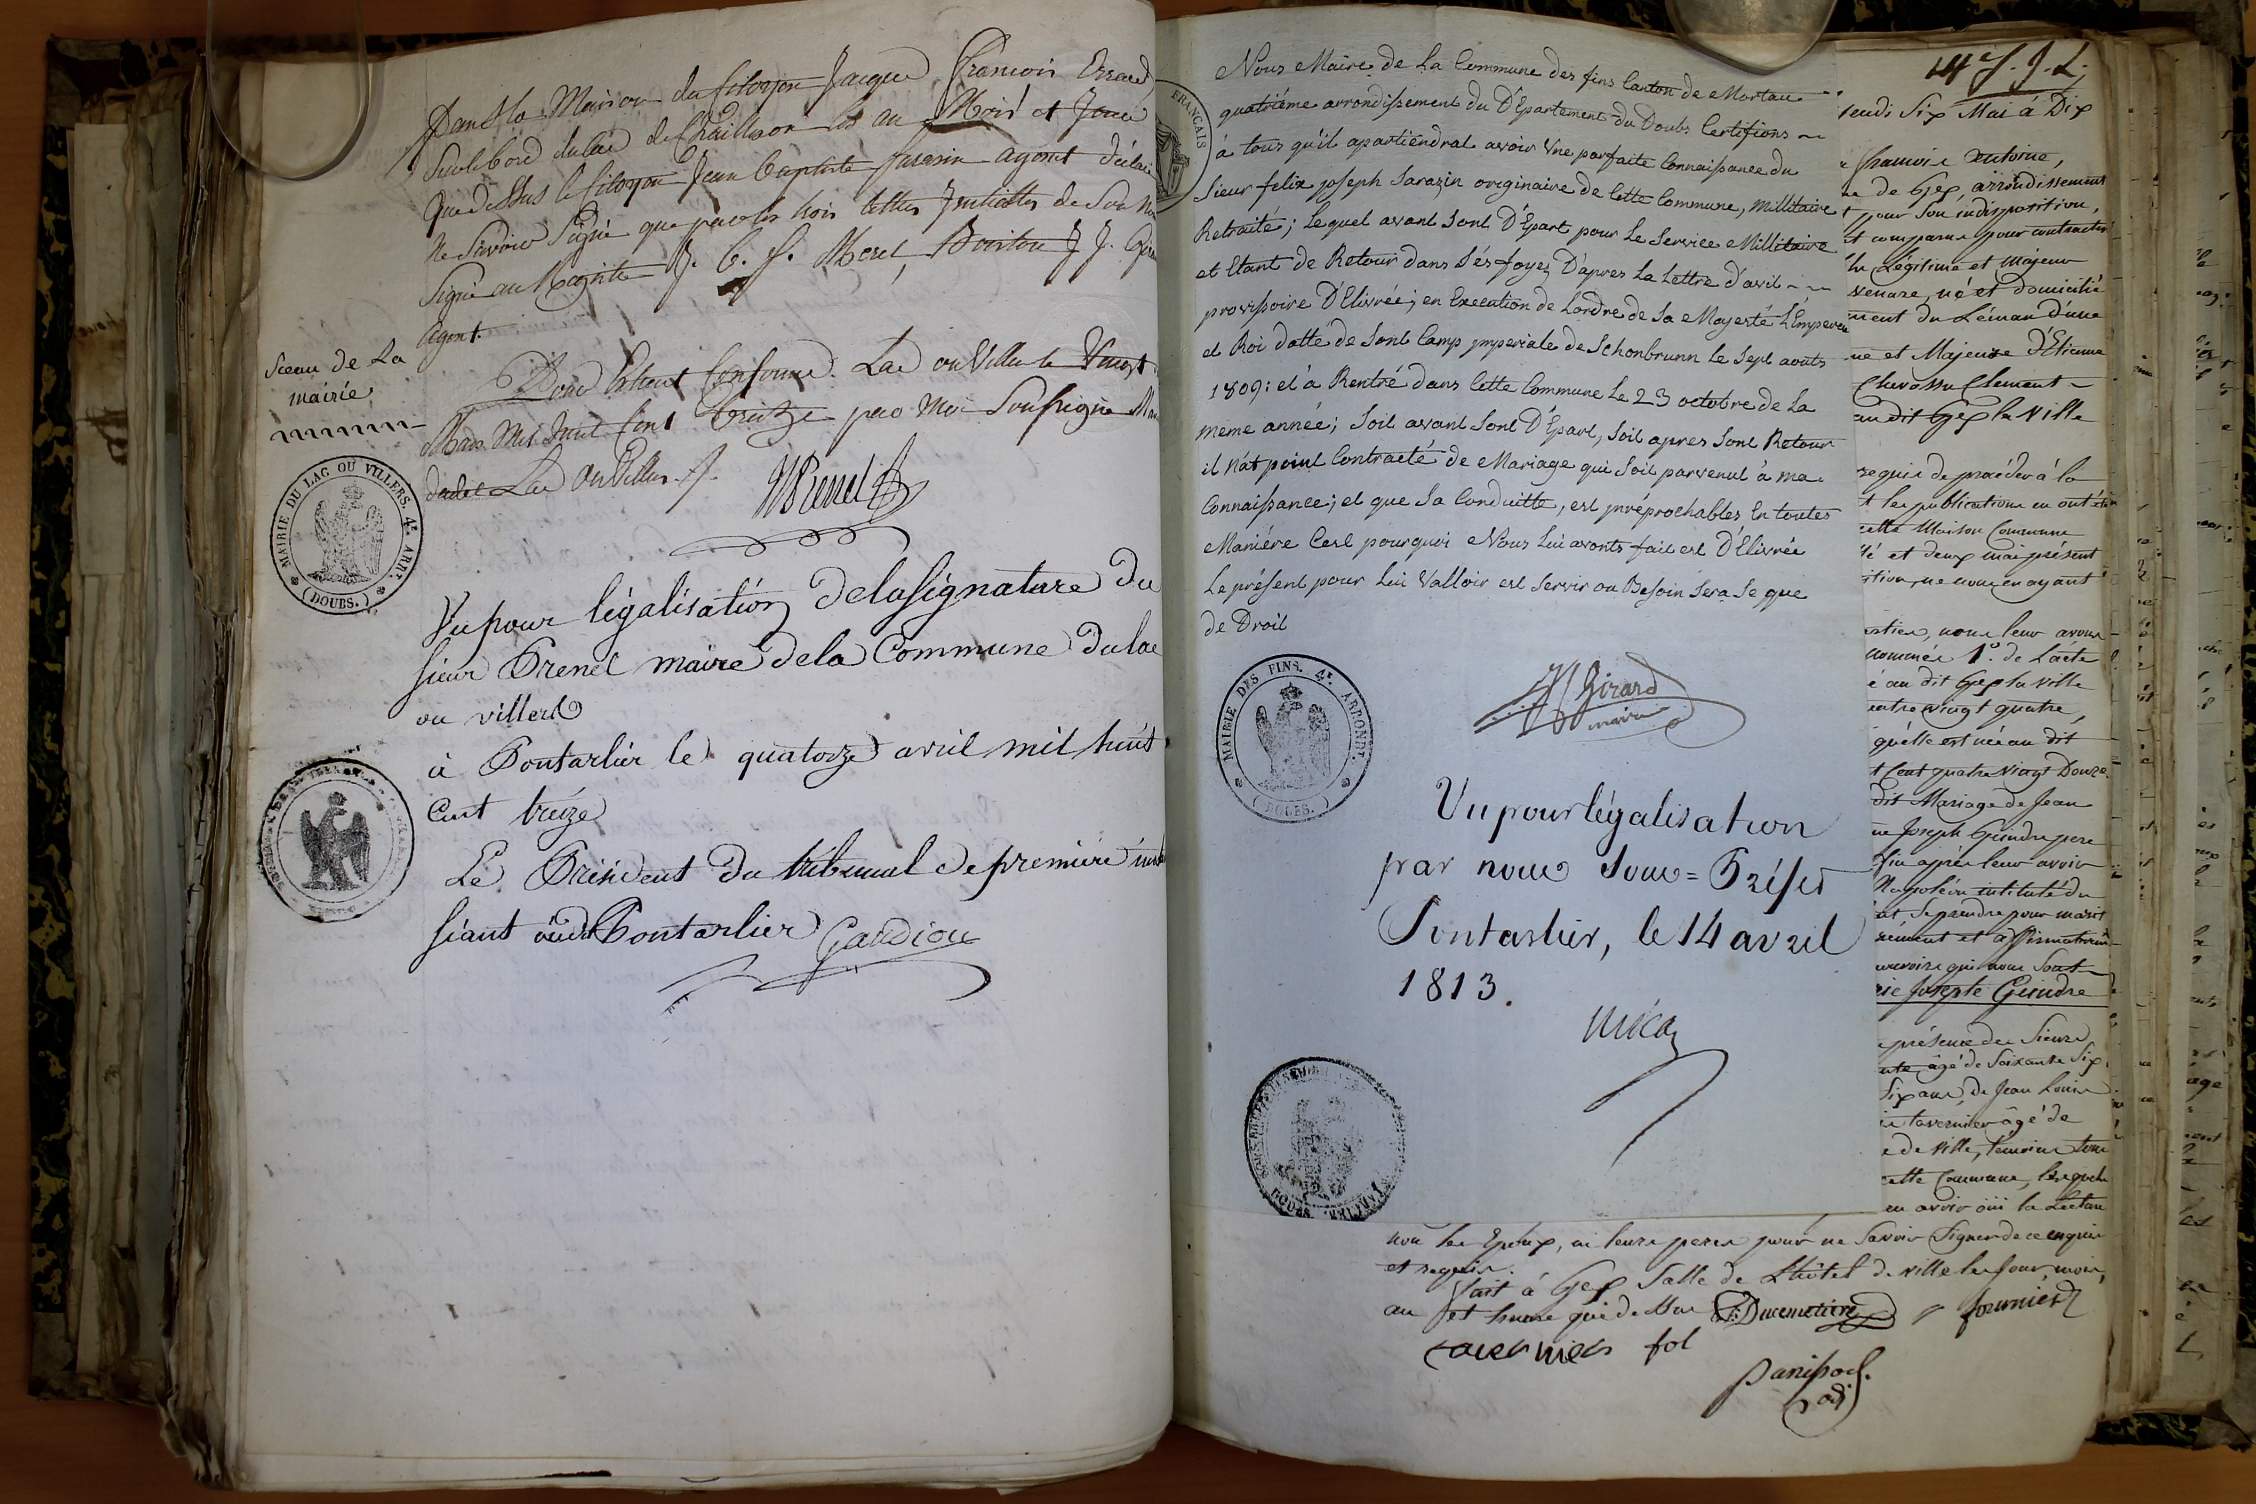 Dans la Maison du Citoyen Jacque François
Sur le bord du lac de Chaillexon les an Mois et Jour
que dessus le Citoyen Jean Baptiste Sarasin agent
ne Savoir Signé que par les trois lettres Initialles de Son No
Signé au Registre J. B. S. Morel, J J.
agent.
Sceau de La
mairie
Pour Extrait Conforme. Lac ou Villers le Vingt
Mars Mil huit Cent treize par Moi Soussigné Ma
dudit Lac ou Villers
Prenel
MAIRIE DU LAC OU VILLERS. 4e. ARRT.
(DOUBS.)
Vu pour légalisation de la signature du
sieur Prenel maire de la Commune du lac
ou villers
à Pontarlier le quatorze avril mil huit
cent treize
Le Président du tribunal de première inst
séant audit Pontarlier Gaudion
FRANÇAIS
Nous Maire de La Commune des fins Canton de Morteau
quatriéme arrondissement du D'Epartement du Doubs Certifions
à tous qu'il apartiendrat avoir Une parfaite Connaissance du
Sieur felix joseph Sarazin originaire de Cette Commune, Millitaire
Retraité; Lequel avant Sont D'Epart pour Le Service Millitaire
et Etant de Retour dans Sés foyez D'apres La Lettre d'avil
provissoire D'Elivrée; en Execution de Lordre de Sa Majesté L'Empereur
et Roi datté de Sont Camp ymperiale de Schonbrunn Le Sept aouts
1809: et à Rentré dans Cette Commune Le 23 octobre de La
meme année; Soit avant Sont D'Epart, Soit apres Sont Retour
il n'at point Contracté de Mariage qui Soit parvenut à ma
Connaissance; et que Sa Conduitte, est ynréprochables En toutes
Maniére C'est pourquoi Nous Lui avonts fait est D'Elivrée
Le présent pour Lui Valloir est Servir ou Besoin Sera Se que
de Droit
Girard
maire
MAIRIE DES FINS. 4e. ARRONDT.
(DOUBS.)
Vu pour légalisation
par nous Sous=Préfet
Pontarlier, le 14 avril
1813.
Micoz
14e J. J. L.
Jeudi Six Mai à Dix
François Antoine,
de Gex, arrondissement
pour Son indisposition,
comparus pour contracter
Légitime et Majeur
né et domicilié
ment du Léman d'une
ne et Majeure D'Etienne
Chevassu Clement
au dit Gex la Ville
requis de procéder à la
les publications en ont été
cette Maison Commune
et deux mai présent
sition, ne nous en ayant
nous leur avons
nommées 1º. de L'acte
é au dit Gex la Ville
uatre vingt quatre,
qu'elle est née au dit
t Cent quatre vingt Douze
dit Mariage de Jean
Joseph Gindre pere
après leur avoir
Napoléon intitulé du
Se prendre pour mari
rément et affirmativem
pouvoirs qui nous Sont
rie Josepte Gindre
présence des Sieurs
âgé de Soixante Six
Six ans, de Jean Louis
tavernier âgé de
de Ville, témoins tous
cette Commune, lesquels
en avoir oüi la Lecture
non les Epoux, ni leurs peres pour ne Savoir Signer de ce enquis
et requis.
fait à Gex Salle de L'hôtel de ville les jour, mois,
an et heure que dessus Ducimetiere fournier
tavernier fol
Panissod.
adj